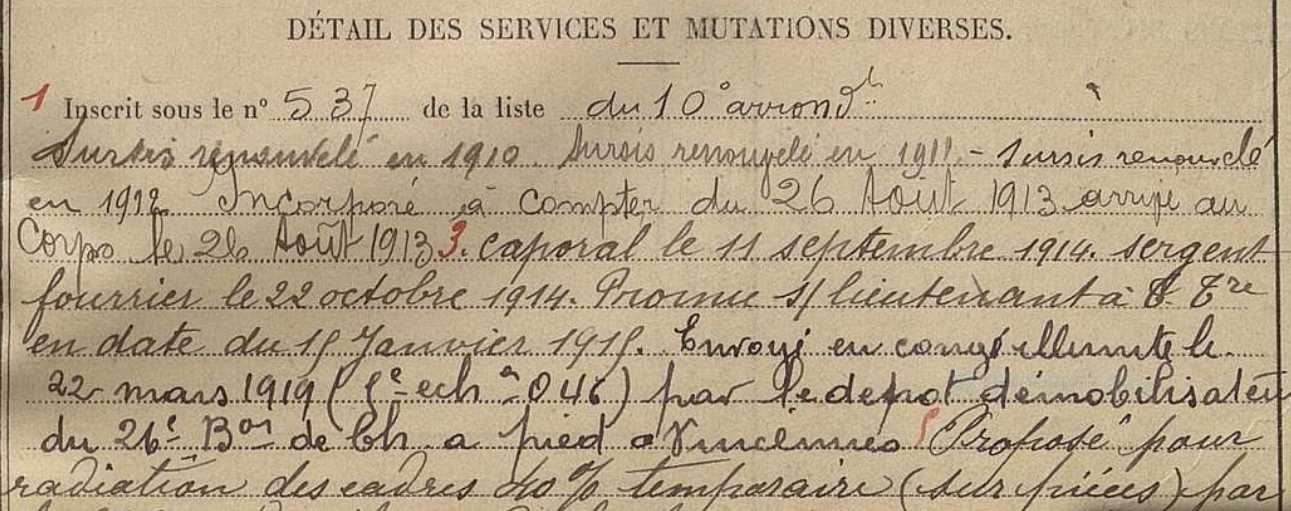 DÉTAIL DES SERVICES ET MUTATIONS DIVERSES.
1 Inscrit sous le n° 537 de la liste du 10° arrondt
Sursis renouvelé en 1910. Sursis renouvelé en 1911.- sursis renouvelé
en 1912 Incorporé à compter du 26 Août 1913 arrivé au
Corps le 26 Août 1913 3. caporal le 11 septembre 1914. sergent
fourrier le 22 octobre 1914. Promu s/lieutenant à T. Tre
en date du 15 Janvier 1915. Envoyé en congé illimité le
22 mars 1919 (5e ech on 046) par le depot démobilisateur
du 26e Bon de Ch. a pied a Vincennes Proposé pour
radiation des cadres 40% temporaire (sur pièces) par